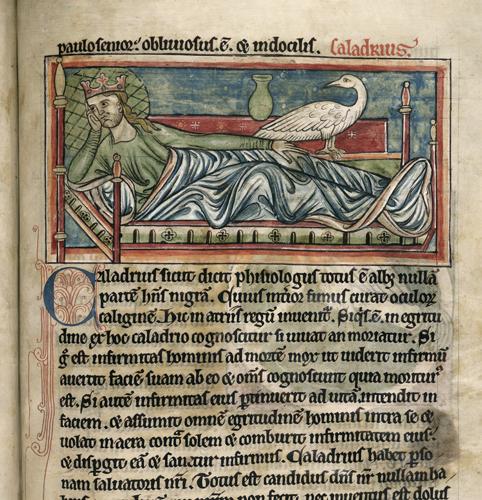 paulo seniorꝫ obliuiosus. ē. ⁊ indocilis. Caladrius.
Caladrius sicut dicit phisiologus totus ē albꝰ nullā
partē hn̄s nigrā. Cuius interior fimus curat oculorꝫ
caliginē. Hic in atriis regū inuenit᷑. Siq̇s. ē. in egritu
dine ex hoc caladrio cognoscitur si uiuat an moriatur. Si
g̊ est infirmitas hominis ad mortē mox ut uiderit infirmū
auertit faciē suam ab eo ⁊ om̄s cognoscunt quia moritur᷑
est. Si autē infirmitas eius ꝑtinuerit ad uitā. intendit in
faciem. ⁊ assumit omnē egritudinē hominis intra se ⁊
uolat in aera contᵃ solem ⁊ comburit infirmitatem eiusꝫ
⁊ disꝑgit eā ⁊ sanatur infirmus. Caladrius habet ꝑso
nam saluatoris nr̄i. Totus est candidus dn̄s nr̄ nullam ha